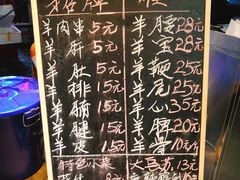 招牌
羊肉串5元
羊肝5元
羊肚5元
羊排15元
羊脯15元
羊腱15元
羊皮15元
特色小菜
羊腰28元
羊宝28元
羊鞭25元
羊尾25元
羊心35元
羊脾20元
羊骨10元
大豆苏13元